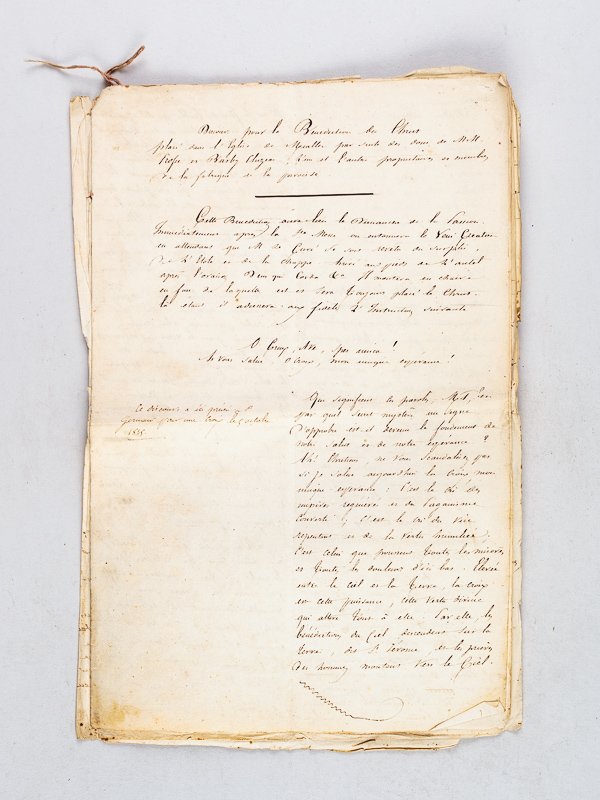 Discours pour la Bénédiction du Christ
placé dans l'Eglise de par suite des dons de M.M.
et propriétaires et membres
de la fabrique de la paroisse
Cette Bénédiction aura lieu le Dimanche de la Passion.
Immédiatement après la Ste Messe on entonnera le Veni Creator
en attendant que M. le Curé se soit revêtu du Surplis,
de l'Etole et de la chappe. aux pieds de l'autel
après l'oraison Deus qui Corda &a Il montera en chaire
en face de laquelle est et sera toujours placé le Christ.
là étant il adressera aux fidèles l'Instruction suivante
O Crux, Ave, spes unica!
Je vous salue, O Croix, mon unique espérance!
Ce discours a été prêché à St
Germain pour une Croix le octobre
Que signifient ces paroles, M.f., et
par quel secret mystère un signe
d'opprobre est-il devenu le fondement de
notre salut et de notre espérance?
Ah! Chrétiens ne vous scandalisez pas
si je salue aujourd'hui la Croix mon
unique espérance; C'est le cri des
et du Paganisme
converti; c'est le cri du vice
repentant et de la vertu humiliée;
C'est celui que toutes les misères
et toutes les douleurs d'ici bas. Elevée
entre le Ciel et la Terre, la Croix
est cette puissance, cette vertu divine
qui attire tout à elle. Par elle, les
bénédictions du Ciel descendent sur la
terre, dit St Jérome, et les prières
des hommes montent vers le Ciel.